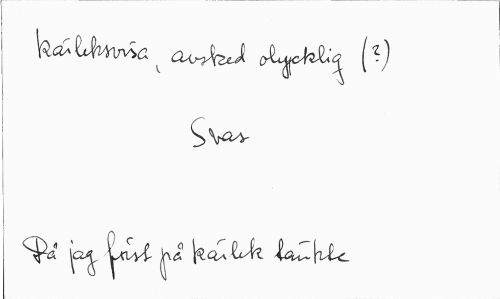 kärleksvisa, avsked olycklig (?)
Svar
Då jag först på kärlek tänkte